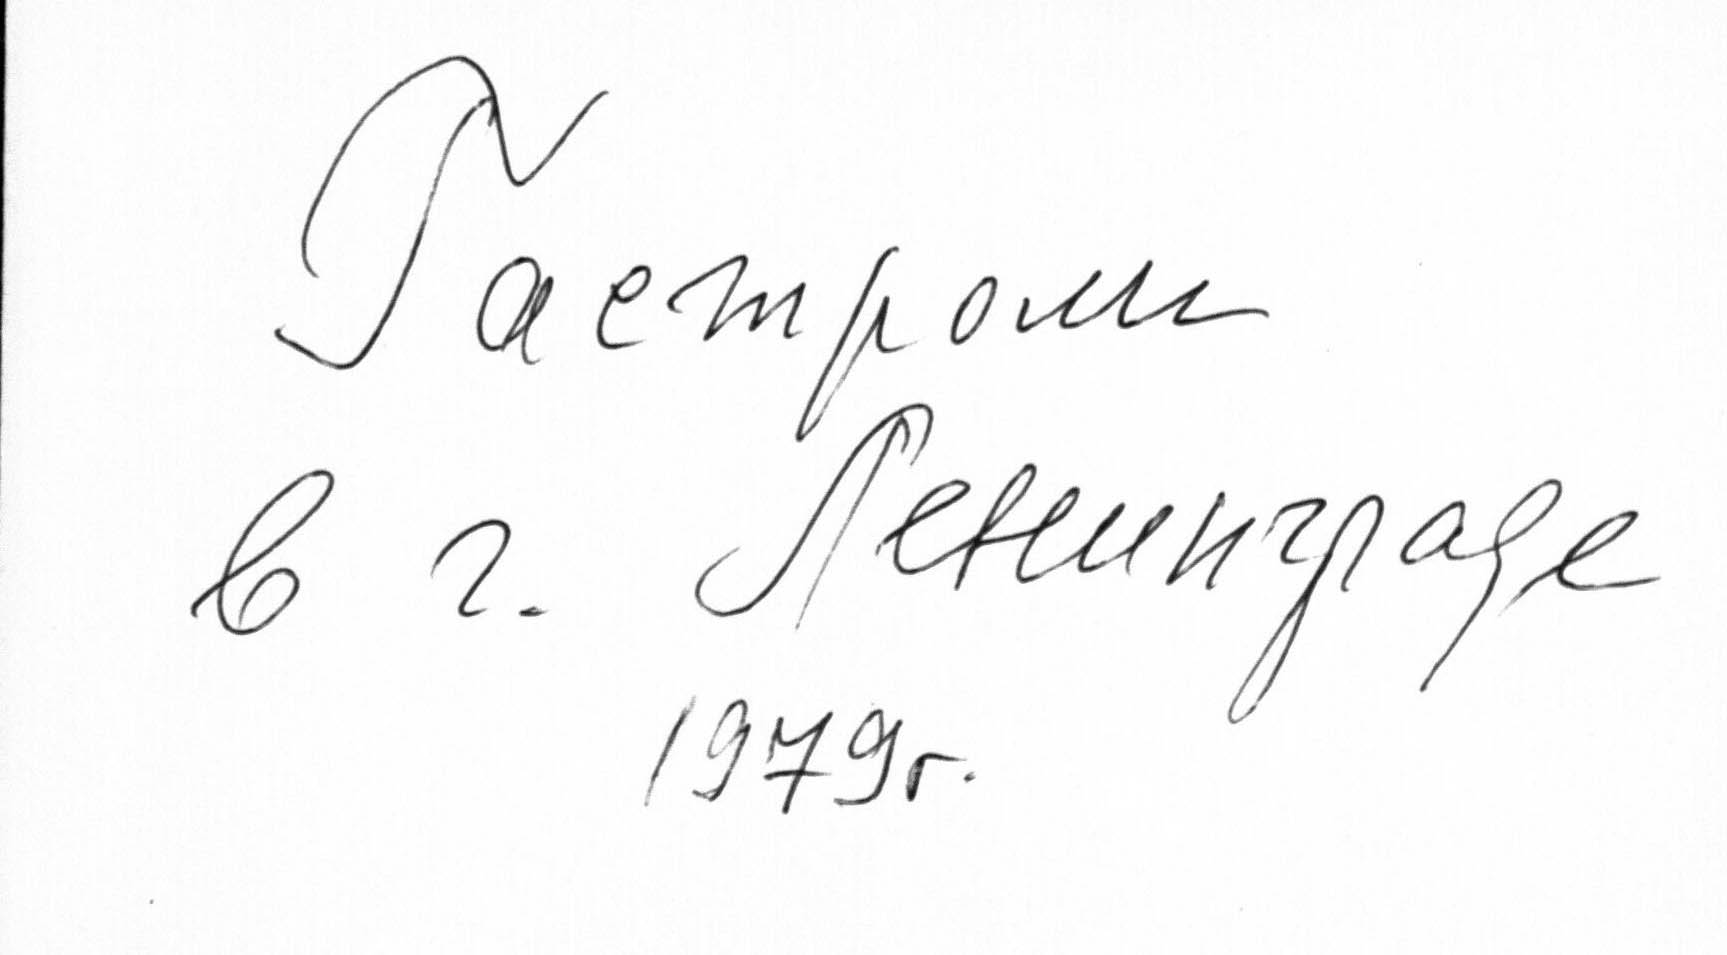 Гастроли
в г. Ленинграде
1979г.